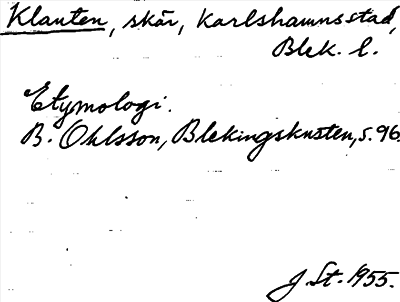 Klauten, skär, Karlshamns stad,
Blek. l.
Etymologi.
B. Ohlsson, Blekingskusten, s. 96.
J. St. 1955.